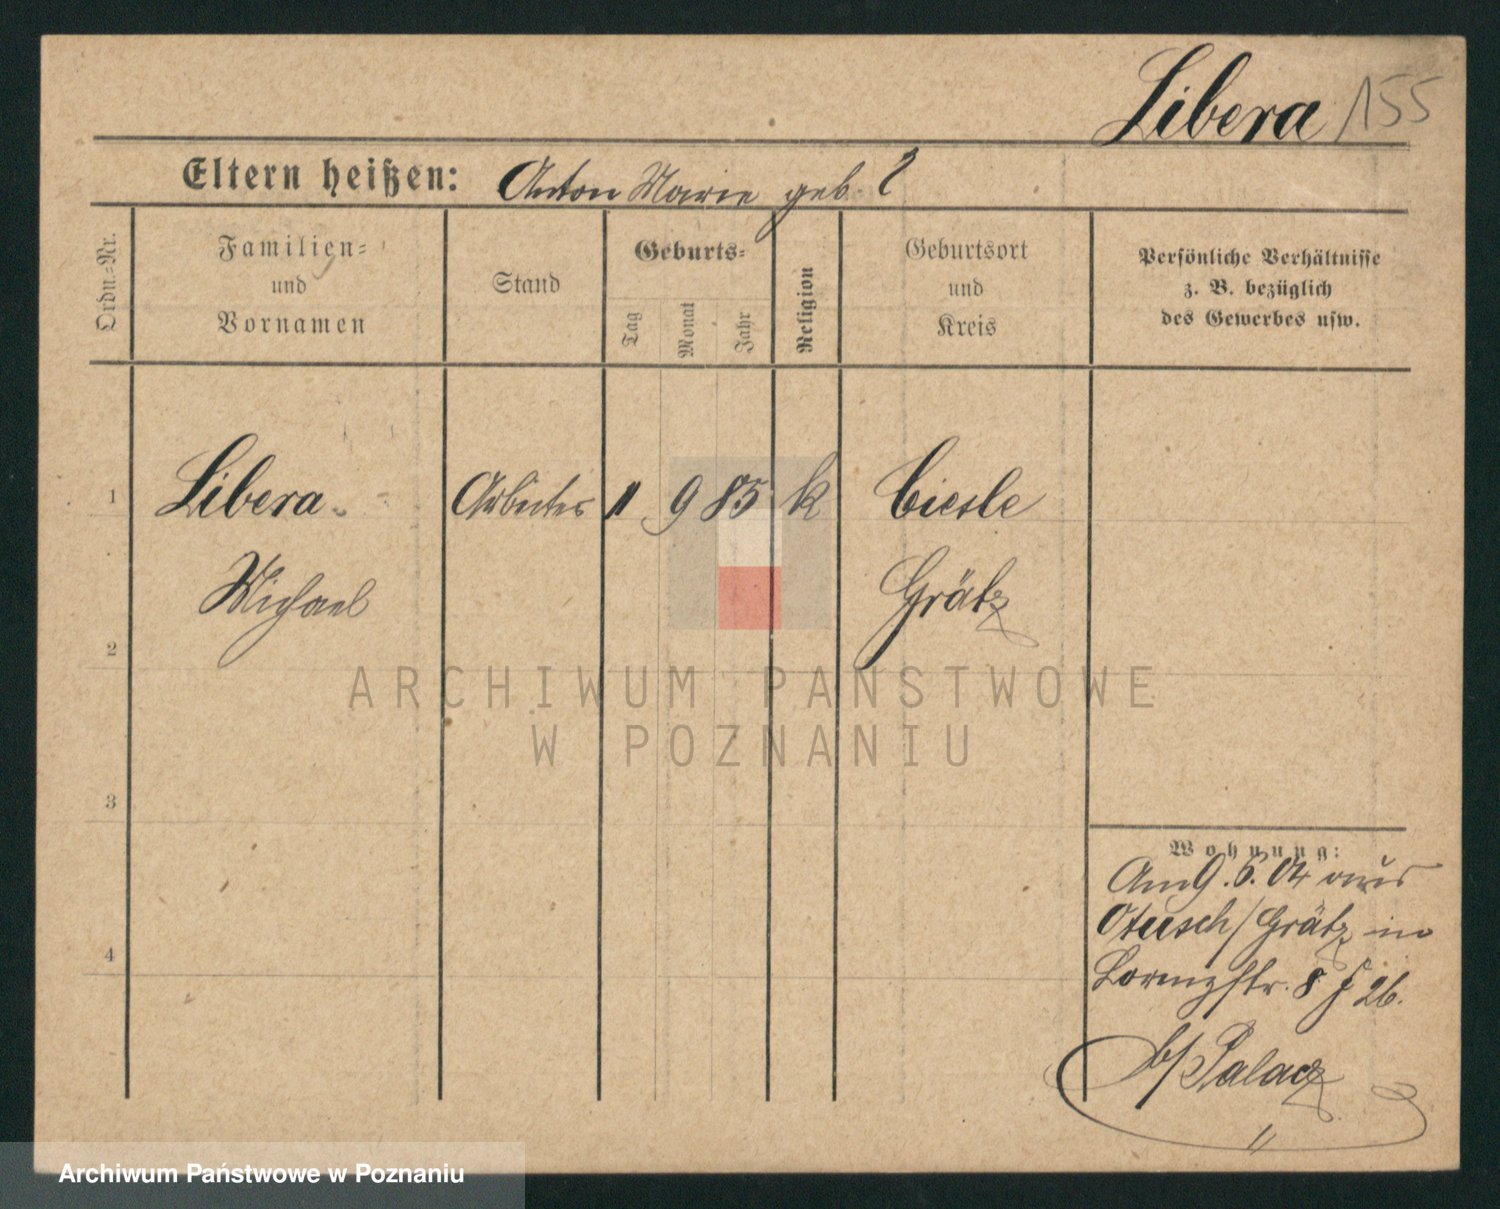 Libera 155
Eltern heißen: Anton Marie geb. ?
Ordn.=Nr.
Familien=
und
Vornamen
Stand
Geburts=
Tag
Monat
Jahr
Religion
Geburtsort
und
Kreis
Persönliche Verhältnisse
z. B. bezüglich
des Gewerbes usw.
1 Libera Arbeiter 11 9 85 k Ciesle
Michael Grätz
2
3
4
Wohnung:
Am 9. 5. 04 aus
Otusch/Grätz in
Lorenzstr. 8 26.
b/Palacz
ARCHIWUM PAŃSTWOWE
W POZNANIU
Archiwum Państwowe w Poznaniu